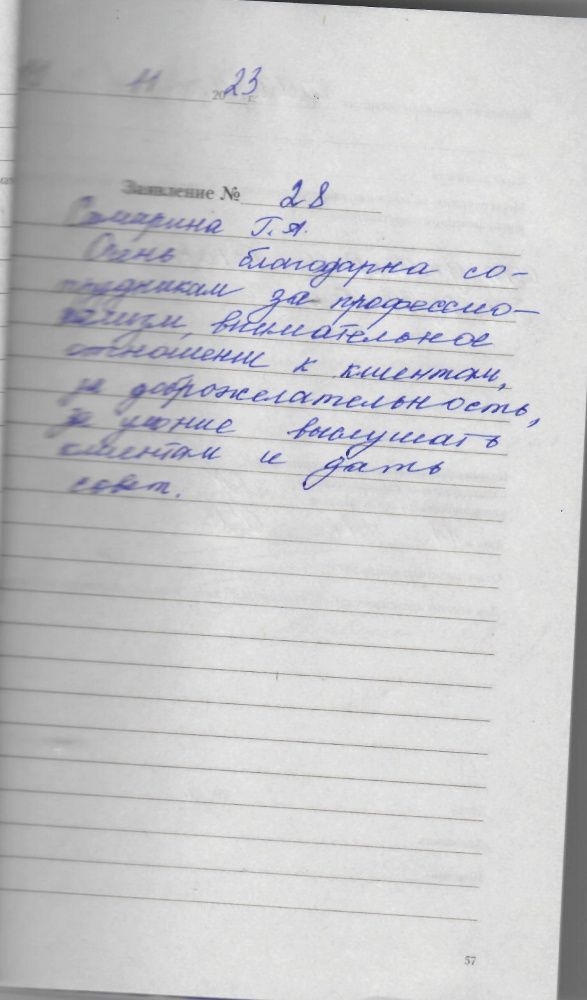 11 2023 г.
Заявление № 28
Г.А.
Очень благодарна со-
трудникам за профессио-
нализм, внимательное
отношение к клиентам,
за доброжелательность,
за умение выслушать
клиентам и дать
совет.
57